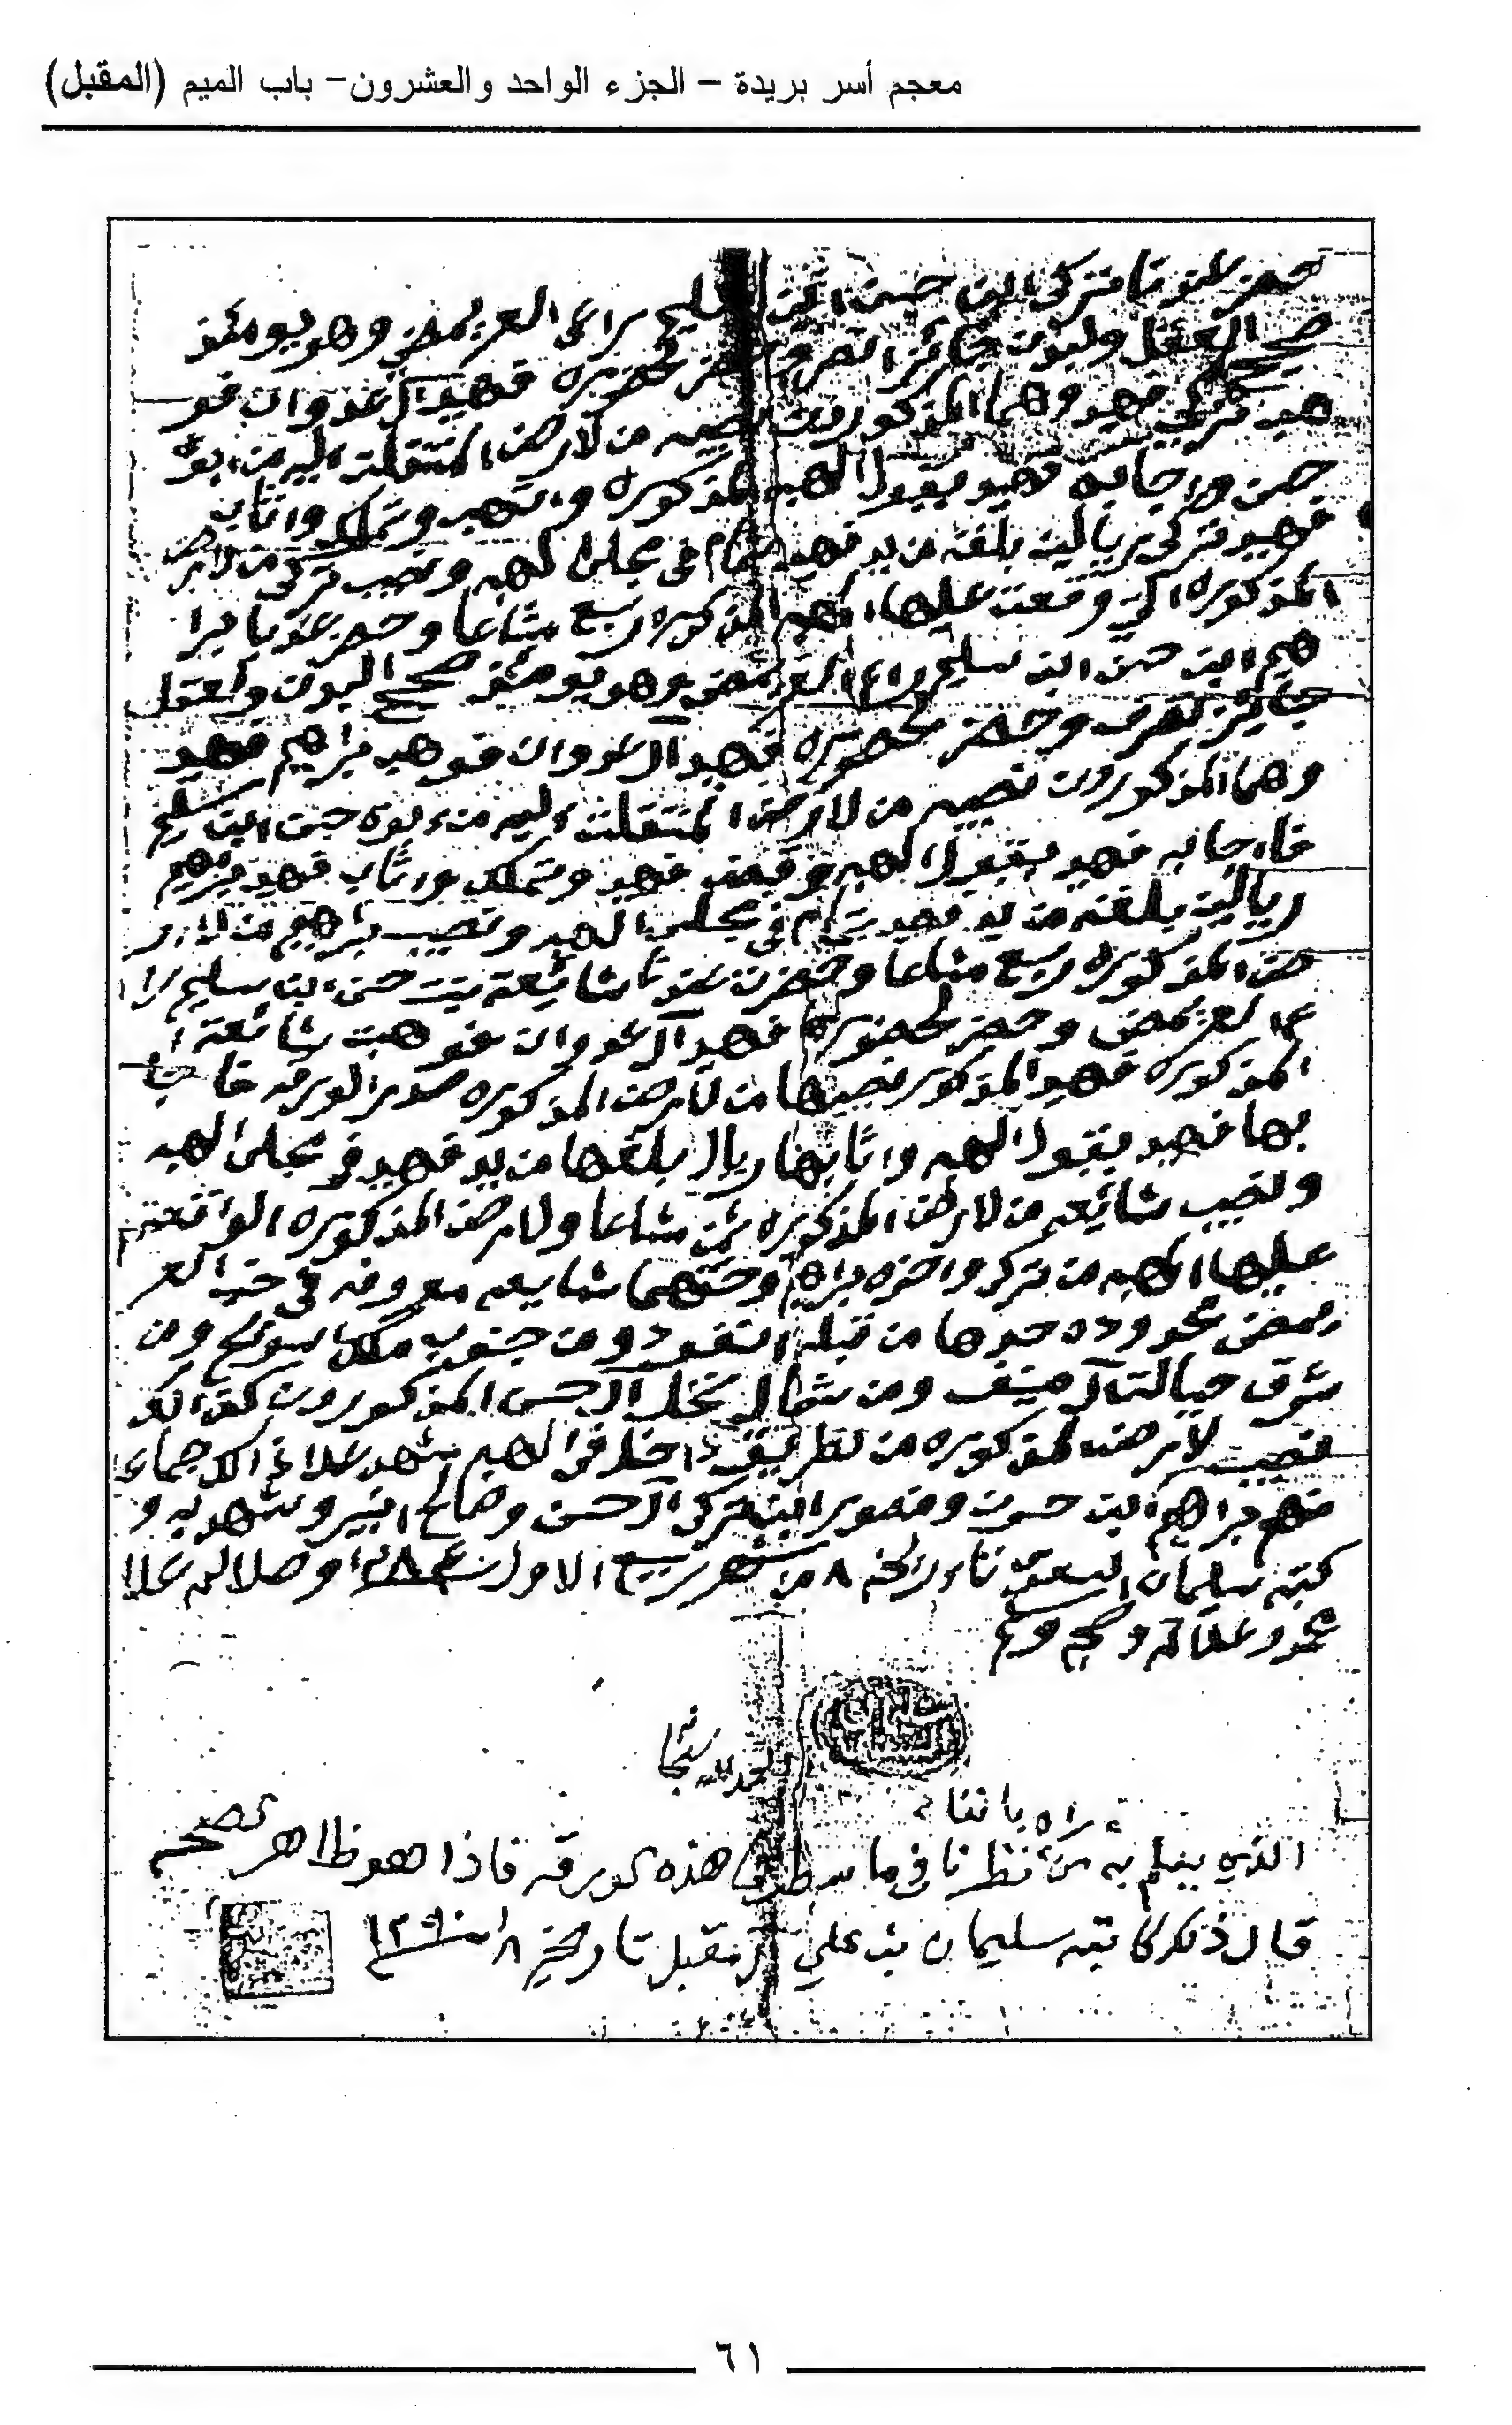 معجم أسر بريدة – الجزء الواحد والعشرون– باب الميم (المقبل)
حضر عندنا تركي ابن حسن ابن سليم راعي العريمضي وهو يومئذ
صحيح العقل ولبدن جائز التصرف وحضر لحضوره فهيد آل عدوان فو
هب تركي فهيد وهما المذكورون نصيبه من لارض المنتقلت اليه من ابوه
حسن واجابه فهيد بقبول الهبه المذكوره وانتهب وتملك واثاب
فهيد تركي ريالين بلغنه من يد فهيد بتمام في مجلس الهبه ونصيب تركي من لارض
المذكوره الذي وقعت عليها الهبه المذكوره ربع مشاعا وحضر عندنا برا
هيم ابن حسن ابن سليم راعي العريمضي وهو يومئذ صحيح البدن ولعقل
جائز لتصرف وحضر لحضوره فهيد آل عدوان فوهب براهيم فهيد
وهما المذكورون نصيبه من لارض المنتقلت اليه من ابوه حسن ابن سليم
فاجابه فهيد بقبول الهبه وقبض فهيد وتملك واثاب فهيد براهيم
ريالين بلغنه من يد فهيد بتمام في مجلس الهبه ونصيب براهيم من لار
ض المذكوره ربع مشاعا وحضرت عندنا شائعة بنت حسن ابن سليم را
عي العريمضي وحضر لحضوره فهيد آل عدوان فوهبت شائعة
المذكوره فهيد المذكور نصيبها من لارض المذكوره صدر الورقه فاجا
بها فهيد بقبول الهبه واثابها ريال بلغها من يد فهيد في مجلس الهبه
ونصيب شائعه من لارض المذكوره ثمن مشاعا ولارض المذكوره الواقعة
عليها الهبه من تركي واخوه براهيم وختهما شايعه معروفه في خب العر
يمضي محدوده حدها من قبله النفود ومن جنوب ملك سويلم ومن
شرق حيالت آل منيف ومن شمال نخل آل حسن المذكورون
نصيب لارض المذكوره من لطريق داخل في الهبه شهد علا ذالك جماعه
منهم براهيم ابن حسون ومنصور ابن تركي آل حسن وصالح وشهد به و
كتبه سليمان تاريخه ٨ من شهر ربيع الاول سنة ١٢٨٤ وصلا الله علا
محمد وعلا آله وصحبه وسلم
الحمد لله سبحانه
يراه باننا
الذي يعلم به من نظرنا في ما سطر في هذه لورقه فاذا هو ظاهر لصحه
قال ذلك كاتبه سليمان بن علي آل مقبل تاريخه ٨
٦١